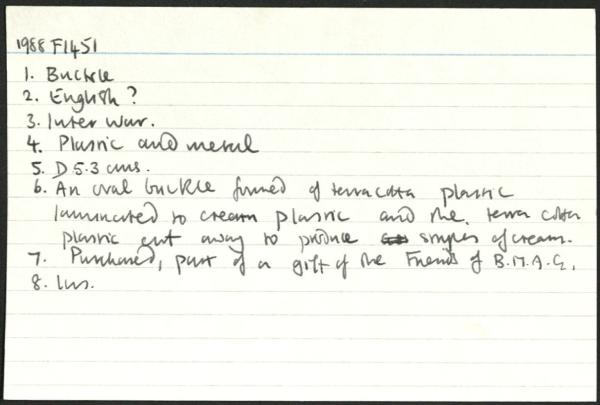 1988 F1451
1. Buckle
2. English?
3. Inter War.
4. Plastic and metal
5. D 5.3 cms.
6. An oval buckle formed of terracotta plastic
laminated to cream plastic and the terra cotta
plastic cut away to produce stripes of cream.
7. Purchased, part of a gift of the Friends of B.M.A.G.
8.